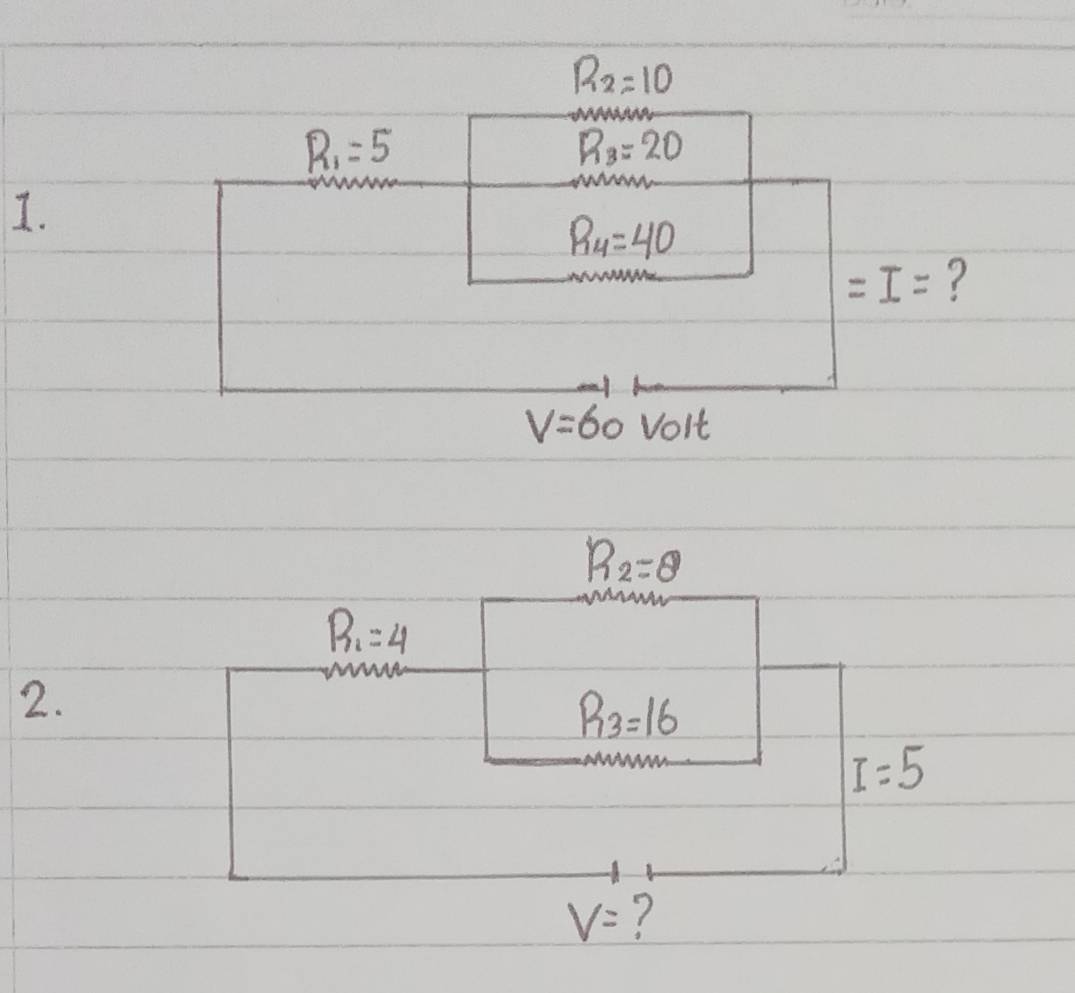 R2=10
R1=5
R3=20
1.
R4=40
=I=?
V=60 Volt
R2=8
R1=4
2.
R3=16
I=5
V=?